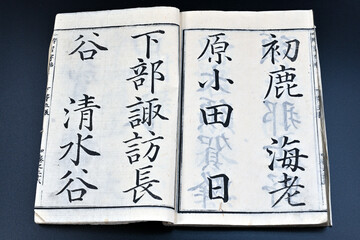 初鹿 海老
原小田 日
下部諏訪長
谷 清水谷